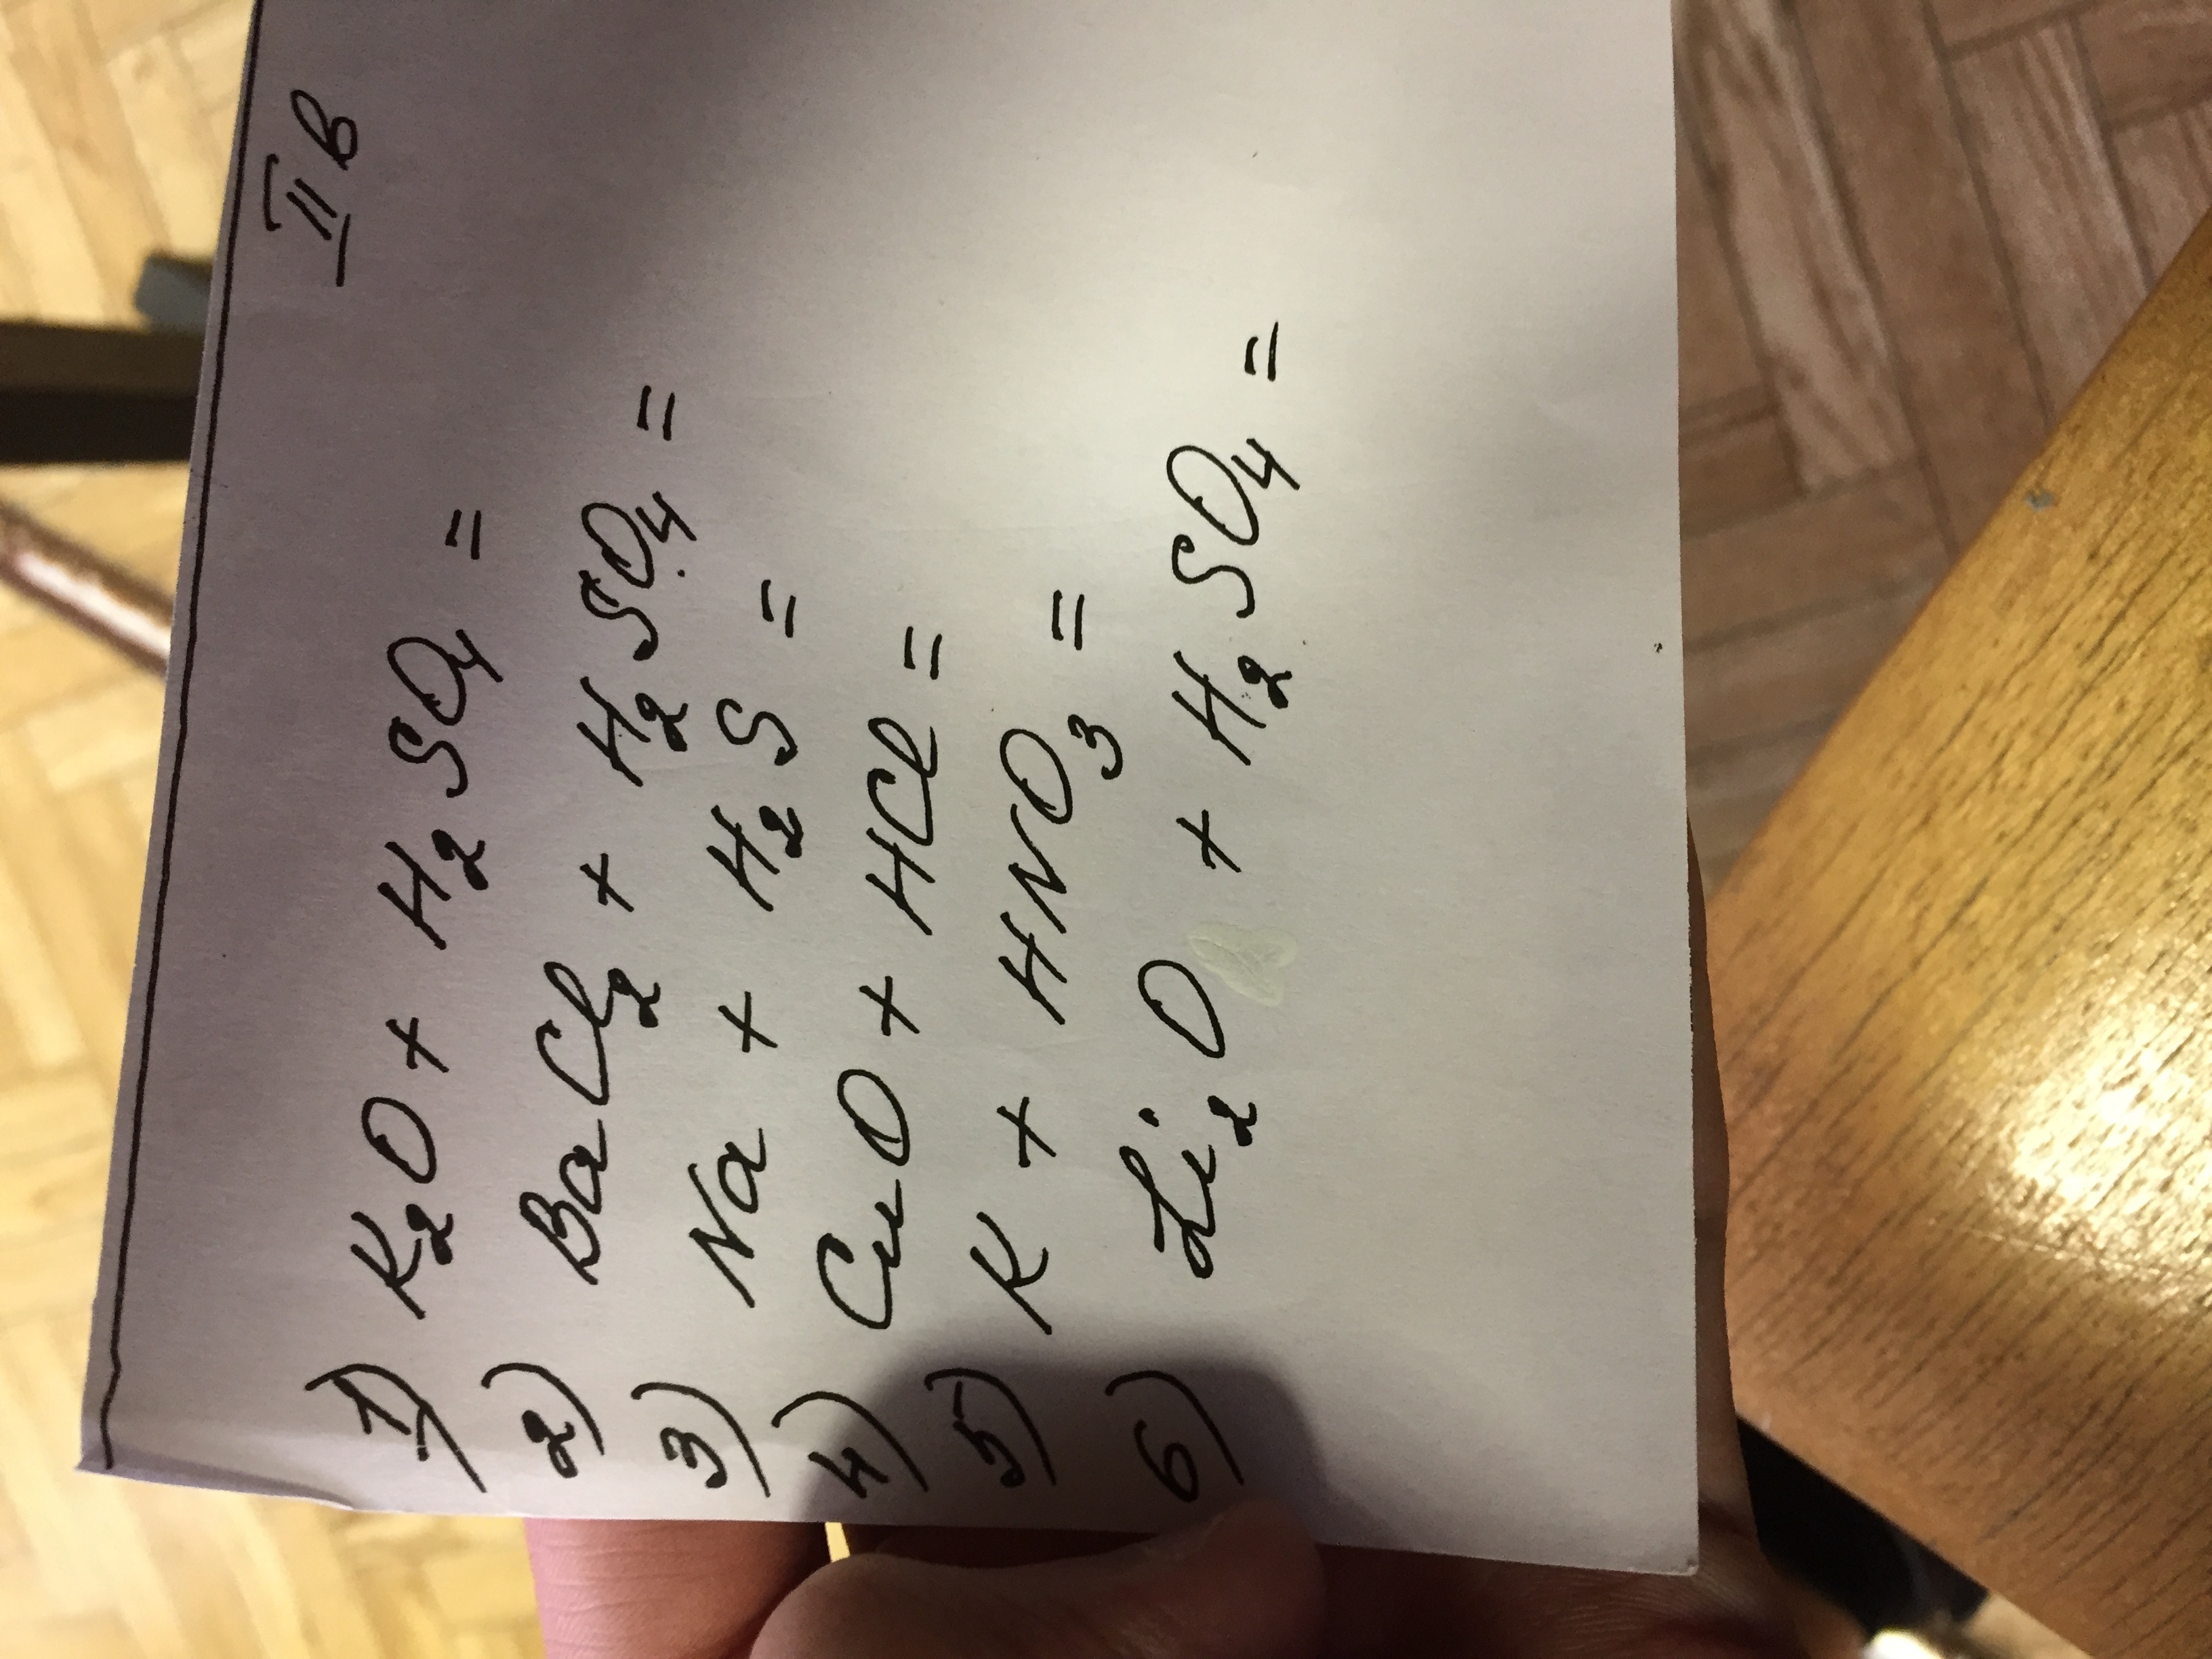 II в
1) K₂O + H₂SO₄ =
2) BaCl₂ + H₂SO₄ =
3) Na + H₂S =
4) CuO + HCl =
5) K + HNO₃ =
6) Li₂O + H₂SO₄ =